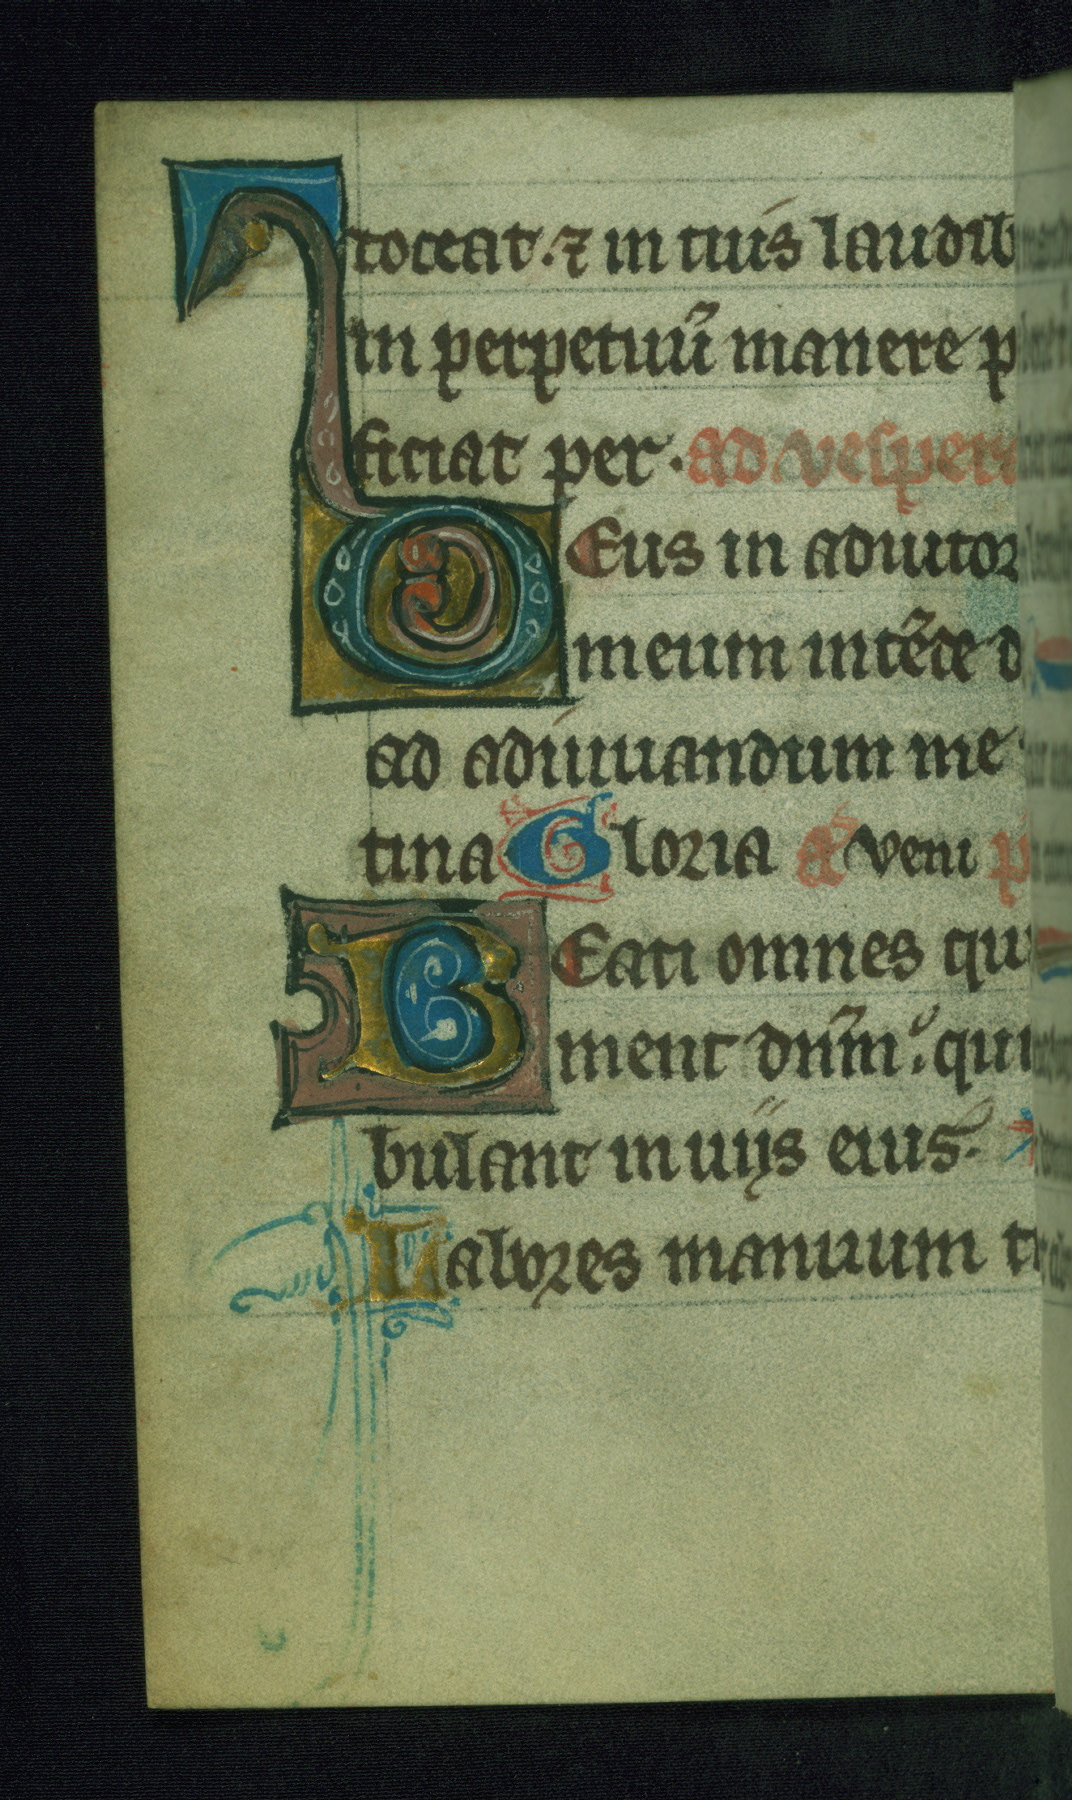 toceat. ⁊ in tuis laudib
in perpetuū manere p
ficiat per. ad vesper
DEus in adiutor
meum intēde d
ad adiuuandum me
tina Gloria añ veni p
BEati omnes qui
ment dn̄m: qui
bulant in uijs eius.
Labores manuum t